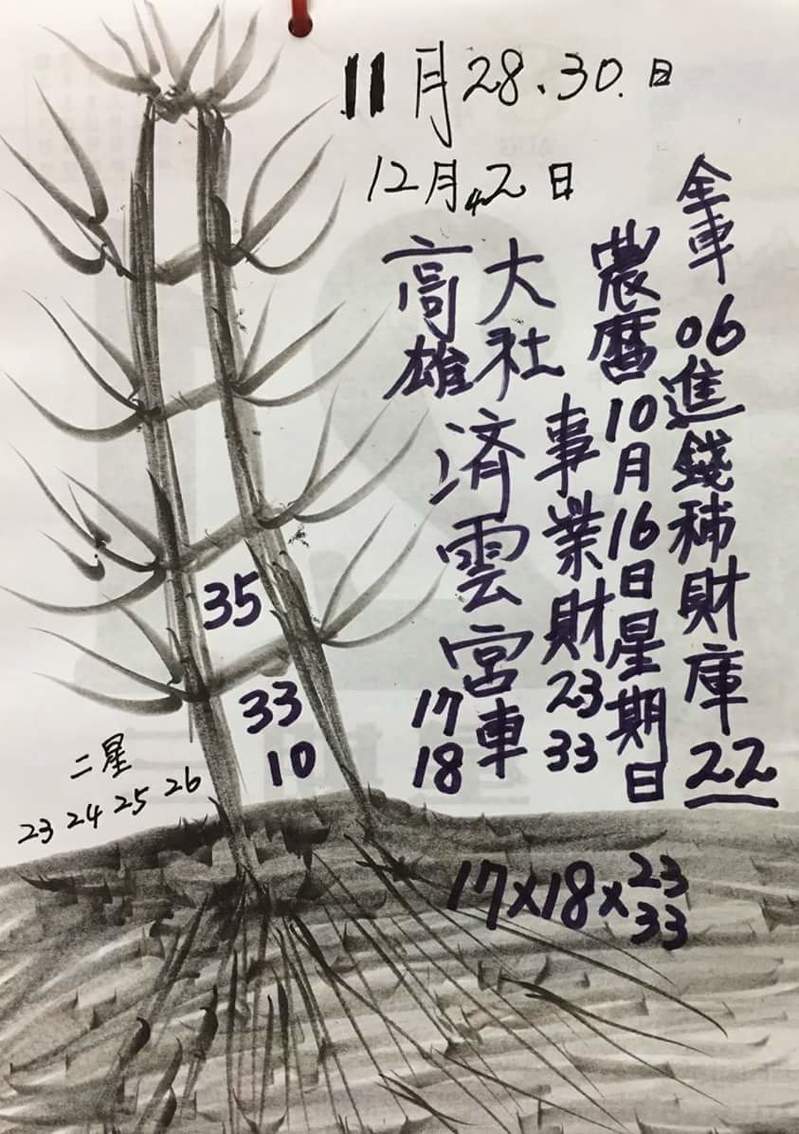 11月28、30.日
12月、2日
全車06進錢補財庫22
農曆10月16日星期日
事業財23
33
大社
高雄
済雲宮車
17
18
35
33
10
二星
23 24 25 26
17×18×23
33